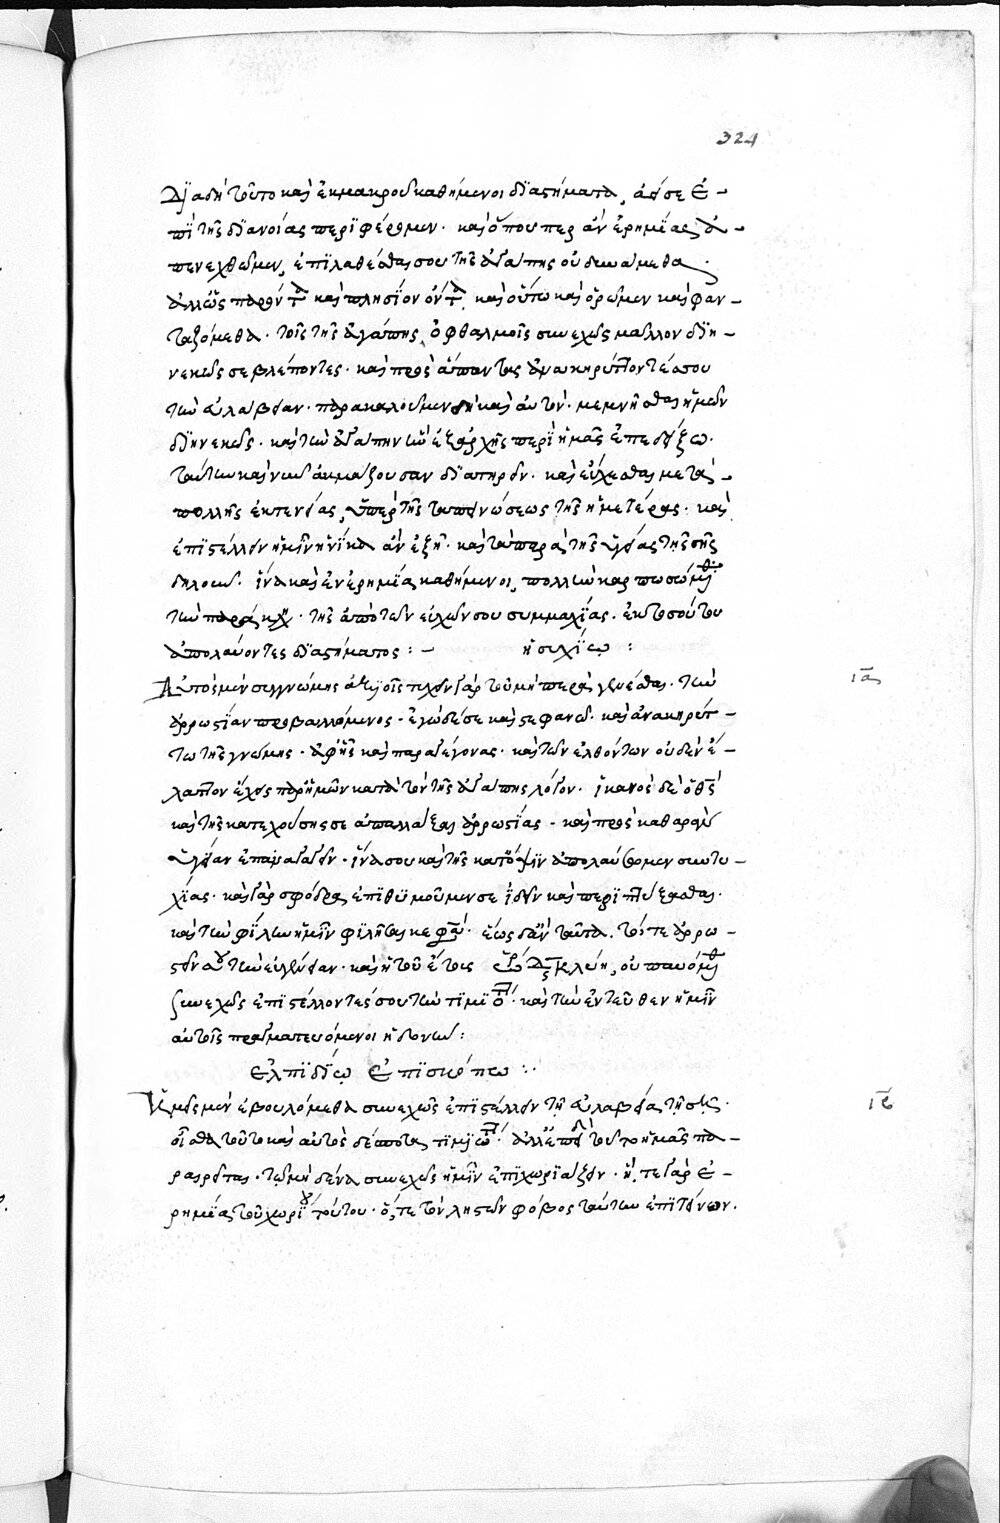 324
Διὰ δὴ τοῦτο καὶ ἐκ μακροῦ καθήμενοι διαστήματος, ἀεί σε ἐ-
πὶ τῆς διανοίας περιφέρομεν· καὶ ὅπου περ ἂν ἐρημίας ἀ-
πενεχθῶμεν, ἐπιλαθέσθαι σου τῆς ἀγάπης οὐ δυνάμεθα·
ἀλλ' ὡς παρόντα καὶ πλησίον ὄντα, καὶ οὕτω καὶ ὁρῶμεν καὶ φαν-
ταζόμεθα· τοῖς τῆς ἀγάπης ὀφθαλμοῖς συνεχῶς μᾶλλον διη-
νεκῶς σε βλέποντες· καὶ πρὸς ἅπαντας ἀνακηρύττοντές σου
τὴν εὐλάβειαν· παρακαλοῦμεν δὴ καὶ αὐτὸν μεμνῆσθαι ἡμῶν
διηνεκῶς· καὶ τὴν ἀγάπην ἣν ἐξ ἀρχῆς περὶ ἡμᾶς ἐπεδείξω·
ταύτην καὶ νῦν ἀκμάζουσαν διατηρεῖν· καὶ εὔχεσθαι μετὰ
πολλῆς ἐκτενείας, ὑπὲρ τῆς ταπεινώσεως τῆς ἡμετέρας· καὶ
ἐπιστέλλειν ἡμῖν ἡνίκα ἂν ἐξῇ· καὶ τὰ περὶ τῆς ὑγείας τῆς σῆς
δηλοῦν· ἵνα καὶ ἐν ἐρημίᾳ καθήμενοι, πολλὴν καρπωσώμεθα
τὴν παράκλησιν· τῆς ἀπὸ τῶν εὐχῶν σου συμμαχίας· ἐκ τοσούτου
ἀπολαύοντες διαστήματος :- Ἡσυχίῳ :
Αὐτὸς μὲν συγγνώμης ἀξιοῖς τυχεῖν γὰρ τοῦ μὴ παραγενέσθαι· τὴν
ἀρρωστίαν προβαλλόμενος· ἐγὼ δέ σε καὶ στεφανῶ· καὶ ἀνακηρύτ-
τω τῆς γνώμης· ἀφ' ἧς καὶ παραγέγονας· καὶ τῶν ἐλθόντων οὐδὲν ἔ-
λαττον ἔχεις παρ' ἡμῶν κατὰ τὸν τῆς ἀγάπης λόγον· ἱκανὸς δὲ ὁ θεὸς
καὶ τῆς κατεχούσης σε ἀπαλλάξαι ἀρρωστίας· καὶ πρὸς καθαρὰν
ὑγείαν ἐπαναγαγεῖν· ἵνα σου καὶ τῆς κατ' ὄψιν ἀπολαύσωμεν συντυ-
χίας· καὶ γὰρ σφόδρα ἐπιθυμοῦμέν σε ἰδεῖν καὶ περιπτύξασθαι·
καὶ τὴν φίλην ἡμῖν φιλῆσαι κεφαλήν· ἕως δ' ἂν ταῦτα, τότε ἀρρω-
συνεχῶς ἐπιστέλλοντές σου τῇ τιμιότητι· καὶ τὴν ἐντεῦθεν ἡμῖν
αὐτοῖς πραγματευόμενοι ἡδονήν :
Ἐλπιδίῳ Ἐπισκόπῳ :
Ἡμεῖς μὲν ἐβουλόμεθα συνεχῶς ἐπιστέλλειν τῇ εὐλαβείᾳ τῇ σῇ·
οἶσθα τοῦτο καὶ αὐτὸς δέσποτα τιμιώτατε· ἀλλ' ἐπειδὴ τοῦτο ἡμᾶς πα-
ραιρεῖται· τῷ μηδένα συνεχῶς ἡμῖν ἐπιχωριάζειν· ἥ, τε γὰρ ἐ-
ρημία τοῦ χωρίου τούτου· ὅ, τε τῶν λῃστῶν φόβος ταύτην ἐπιτείνων·